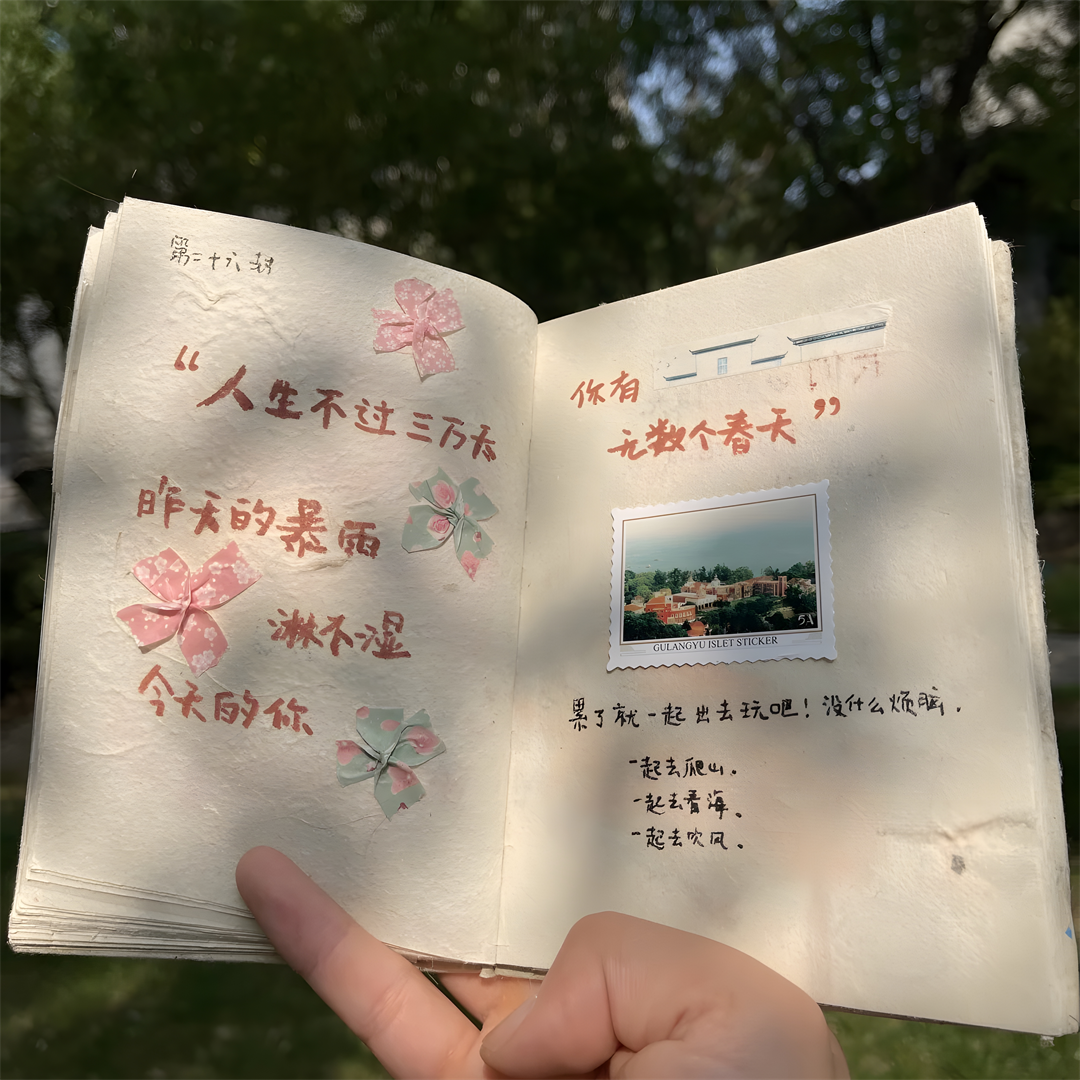 第二十六封
“人生不过三万天
昨天的暴雨
淋不湿
今天的你
你有
无数个春天”
GULANGYU ISLET STICKER
累了就一起出去玩吧！没什么烦脑.
一起去爬山.
一起去看海。
一起去吹风。